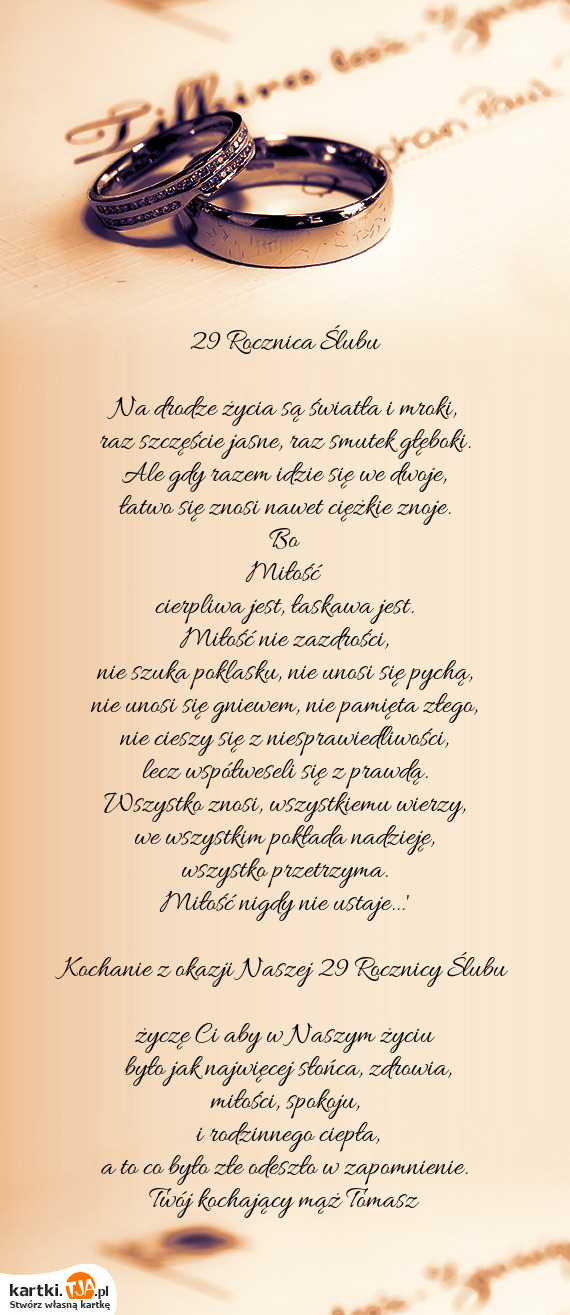 29 Rocznica Ślubu
Na drodze życia są światła i mroki,
raz szczęście jasne, raz smutek głęboki.
Ale gdy razem idzie się we dwoje,
łatwo się znosi nawet ciężkie znoje.
Bo
Miłość
cierpliwa jest, łaskawa jest.
Miłość nie zazdrości,
nie szuka poklasku, nie unosi się pychą,
nie unosi się gniewem, nie pamięta złego,
nie cieszy się z niesprawiedliwości,
lecz współweseli się z prawdą.
Wszystko znosi, wszystkiemu wierzy,
we wszystkim pokłada nadzieję,
wszystko przetrzyma.
Miłość nigdy nie ustaje...'
Kochanie z okazji Naszej 29 Rocznicy Ślubu
życzę Ci aby w Naszym życiu
było jak najwięcej słońca, zdrowia,
miłości, spokoju,
i rodzinnego ciepła,
a to co było złe odeszło w zapomnienie.
Twój kochający mąż Tomasz
kartki.TJA.pl
Stwórz własną kartkę